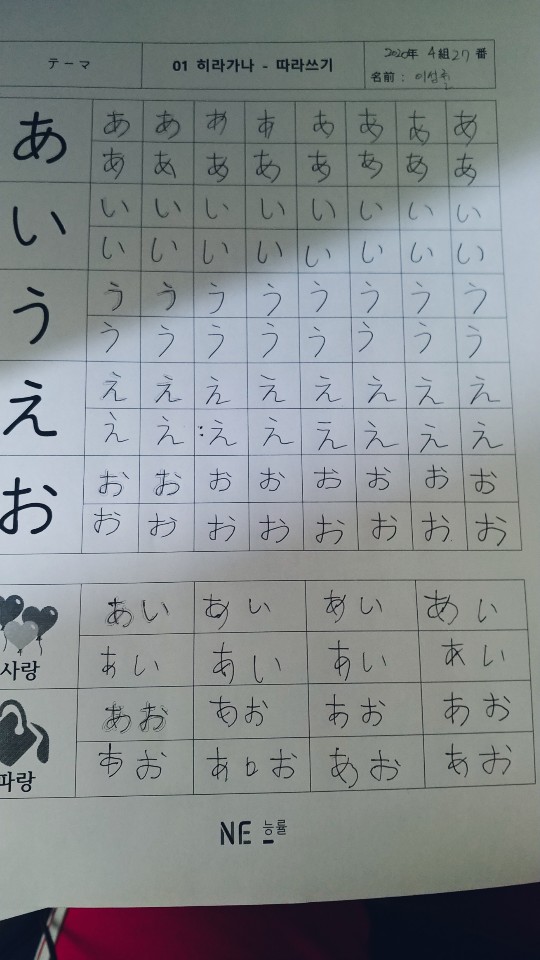 テーマ 01 히라가나 - 따라쓰기 2020年 4組27番
名前 : 이섬훈
あ あ あ あ あ あ あ あ あ
あ あ あ あ あ あ あ あ
い い い い い い い い い
い い い い い い い い
う う う う う う う う う
う う う う う う う う
え え え え え え え え え
え え え え え え え え
お お お お お お お お お
お お お お お お お お
あい あい あい あい
사랑 あい あい あい あい
あお あお あお あお
파랑 あお あロお あお あお
NE 능률